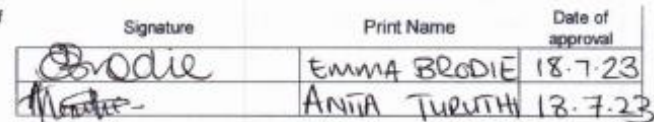 Signature Print Name Date of
approval
Brodie EMMA BRODIE 18.7.23
ANITA TURUTHI 18.7.23